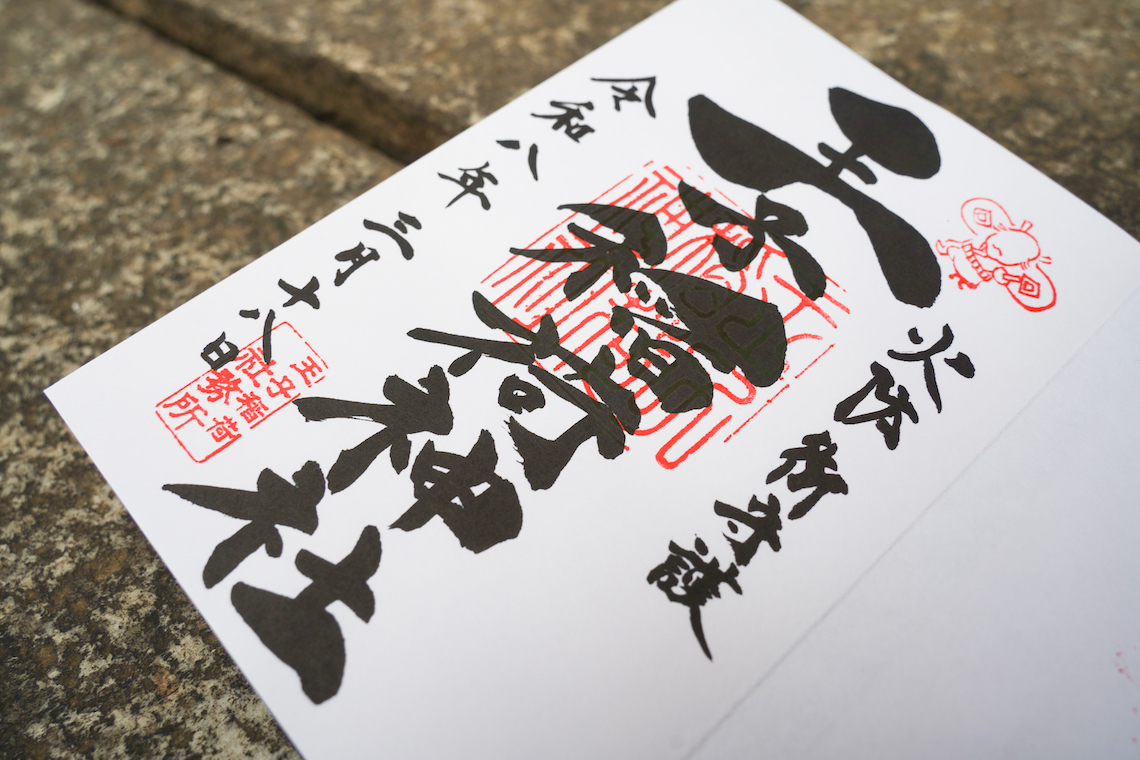 火防御守護
王子稲荷神社
令和八年三月十八日
王子稲荷
社務所